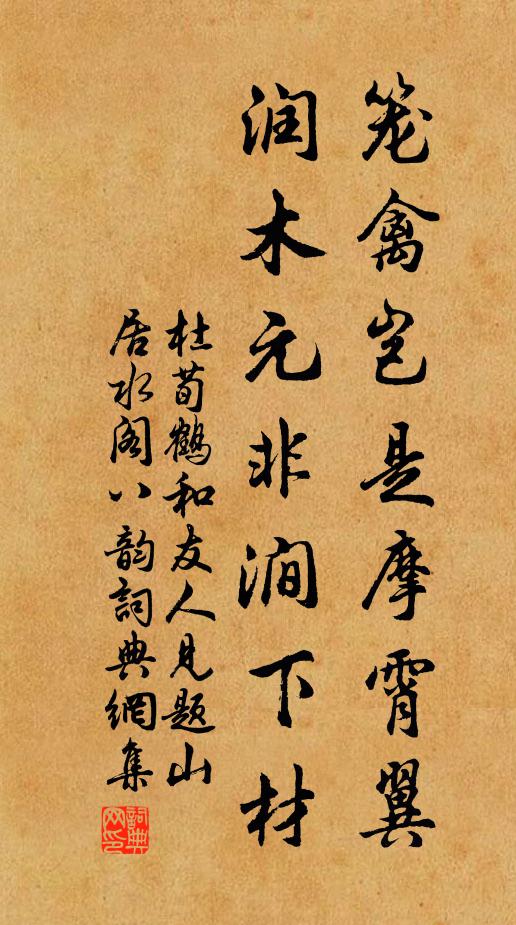 笼禽岂是摩霄翼
润木元非涧下材
杜荀鹤和友人见题山
居水阁八韵詞典網集
詞典
网印